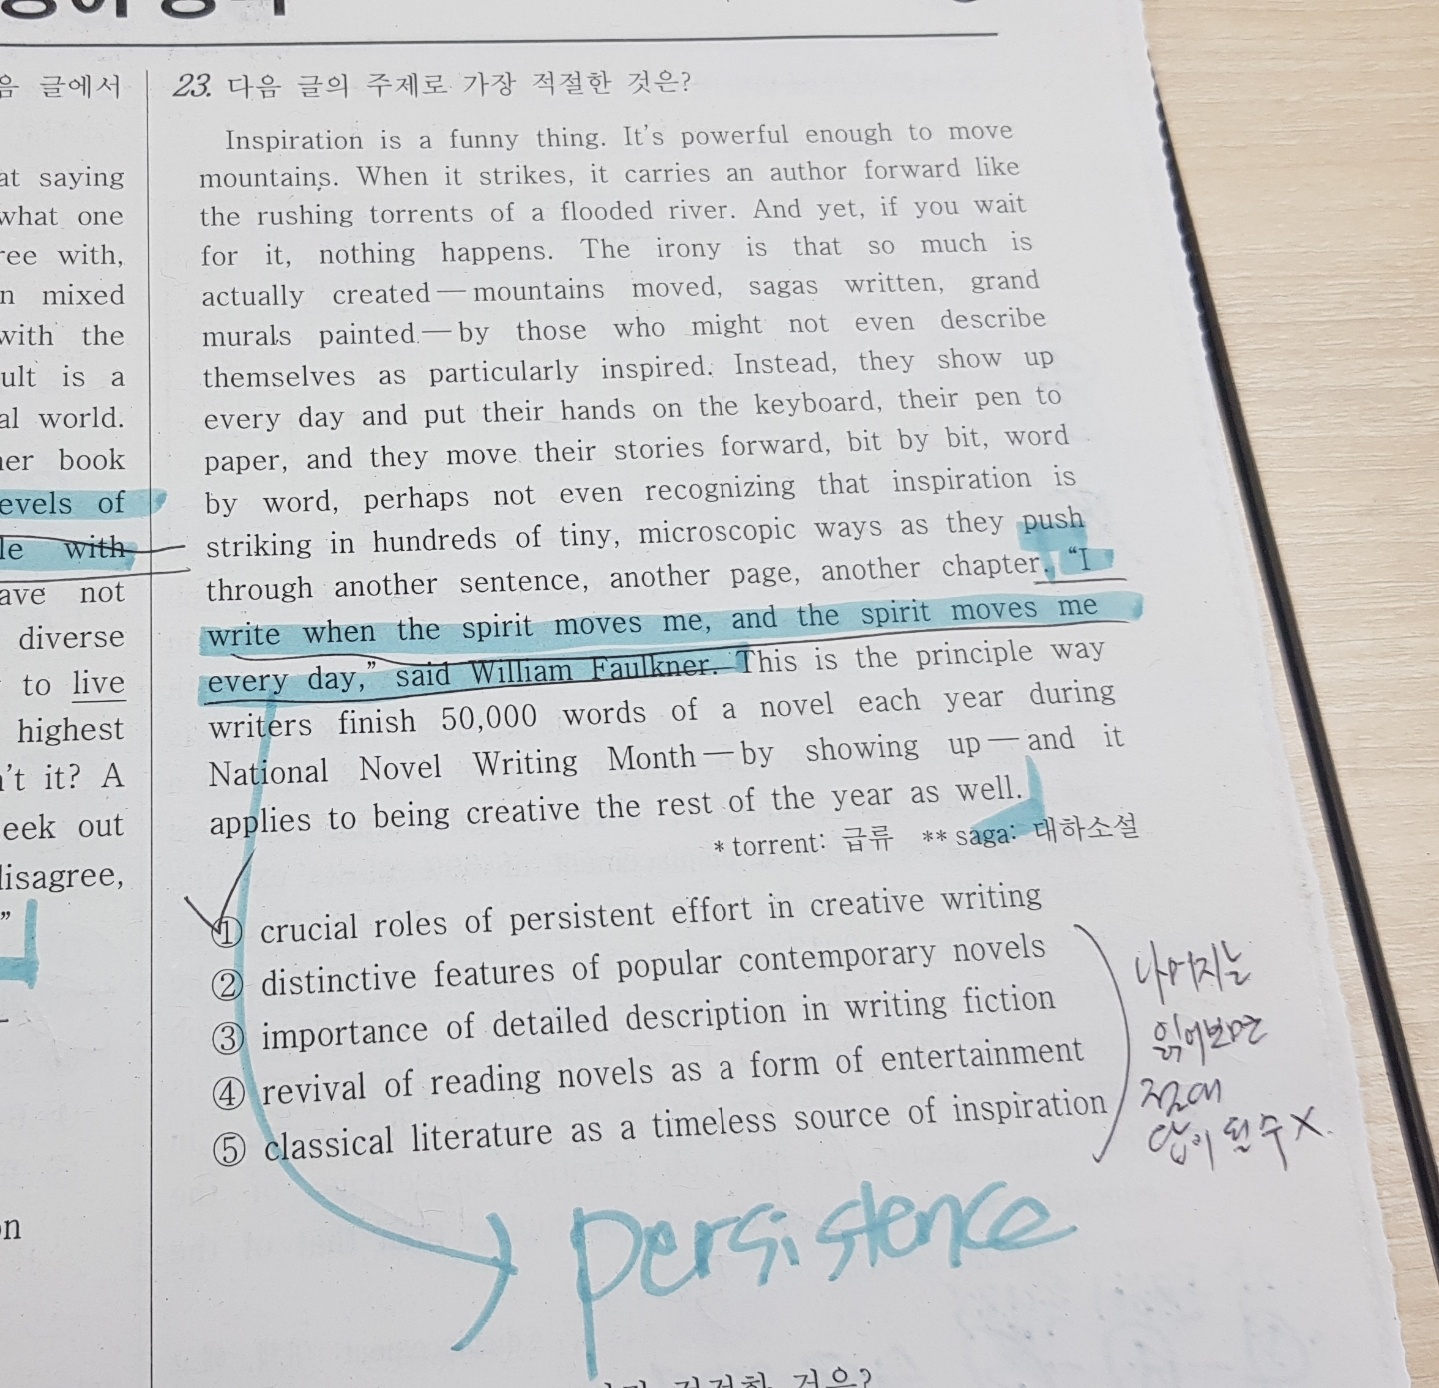 음 글에서
at saying
what one
ree with,
n mixed
with the
ult is a
al world.
her book
evels of
le with
ave not
diverse
to live
highest
't it? A
eek out
disagree,
”
on
23. 다음 글의 주제로 가장 적절한 것은?
Inspiration is a funny thing. It's powerful enough to move
mountains. When it strikes, it carries an author forward like
the rushing torrents of a flooded river. And yet, if you wait
for it, nothing happens. The irony is that so much is
actually created—mountains moved, sagas written, grand
murals painted—by those who might not even describe
themselves as particularly inspired. Instead, they show up
every day and put their hands on the keyboard, their pen to
paper, and they move their stories forward, bit by bit, word
by word, perhaps not even recognizing that inspiration is
striking in hundreds of tiny, microscopic ways as they push
through another sentence, another page, another chapter. “I
write when the spirit moves me, and the spirit moves me
every day,” said William Faulkner. This is the principle way
writers finish 50,000 words of a novel each year during
National Novel Writing Month—by showing up—and it
applies to being creative the rest of the year as well.
* torrent: 급류 ** saga: 대하소설
① crucial roles of persistent effort in creative writing
② distinctive features of popular contemporary novels
③ importance of detailed description in writing fiction
④ revival of reading novels as a form of entertainment
⑤ classical literature as a timeless source of inspiration
나머지는
읽어보면
절대
답이 될 수 X.
persistence
것은?